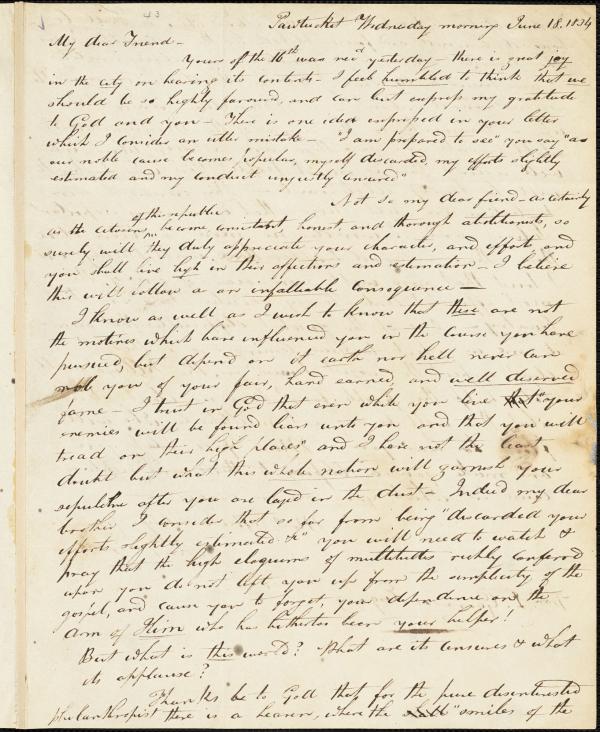 43
Pawtucket Wednesday morning June 18. 1834
My dear Friend -
Yours of the 16th was recd yesterday - there is great joy
in the city on hearing its contents - I feel humbled to think that we
should be so highly favoured, and can but express my gratitude
to God and you - There is one idea expressed in your letter
which I consider an utter mistake - "I am prepared to see" you say "as
our noble cause becomes popular, myself discarded, my efforts slightly
estimated and my conduct unjustly censured"
Not so my dear friend - as certainly
of the republic
as the citizens become consistent, honest, and thorough abolitionists, so
surely will they duly appreciate your character, and efforts, and
you shall live high in their affections and estimation - I believe
this will follow as an infalliable consequence -
I know as well as I wish to know that these are not
the motives which have influenced you in the course you have
pursued, but depend on it earth nor hell never can
rob you of your fair, hard earned, and well deserved
fame - I trust in God that even while you live that "your
enemies will be found liars unto you and that you will
tread on their high places" and I have not the least
doubt but what this whole nation will garnish your
sepulchre after you are layed in the dust - Indeed my dear
brother I consider that so far from being "discarded your
efforts slightly estimated &c" you will need to watch &
pray that the high eloqiums of multitudes richly conferred
upon you do not lift you up from the simplicity of the
gospel, and cause you to forget your dependence on the
arm of Him who has hitherto been your helper!
But what is this world? What are its censures & what
its applause?
Thanks be to God that for the pure disinterested
philanthropist there is a heaven, where the "smiles of the